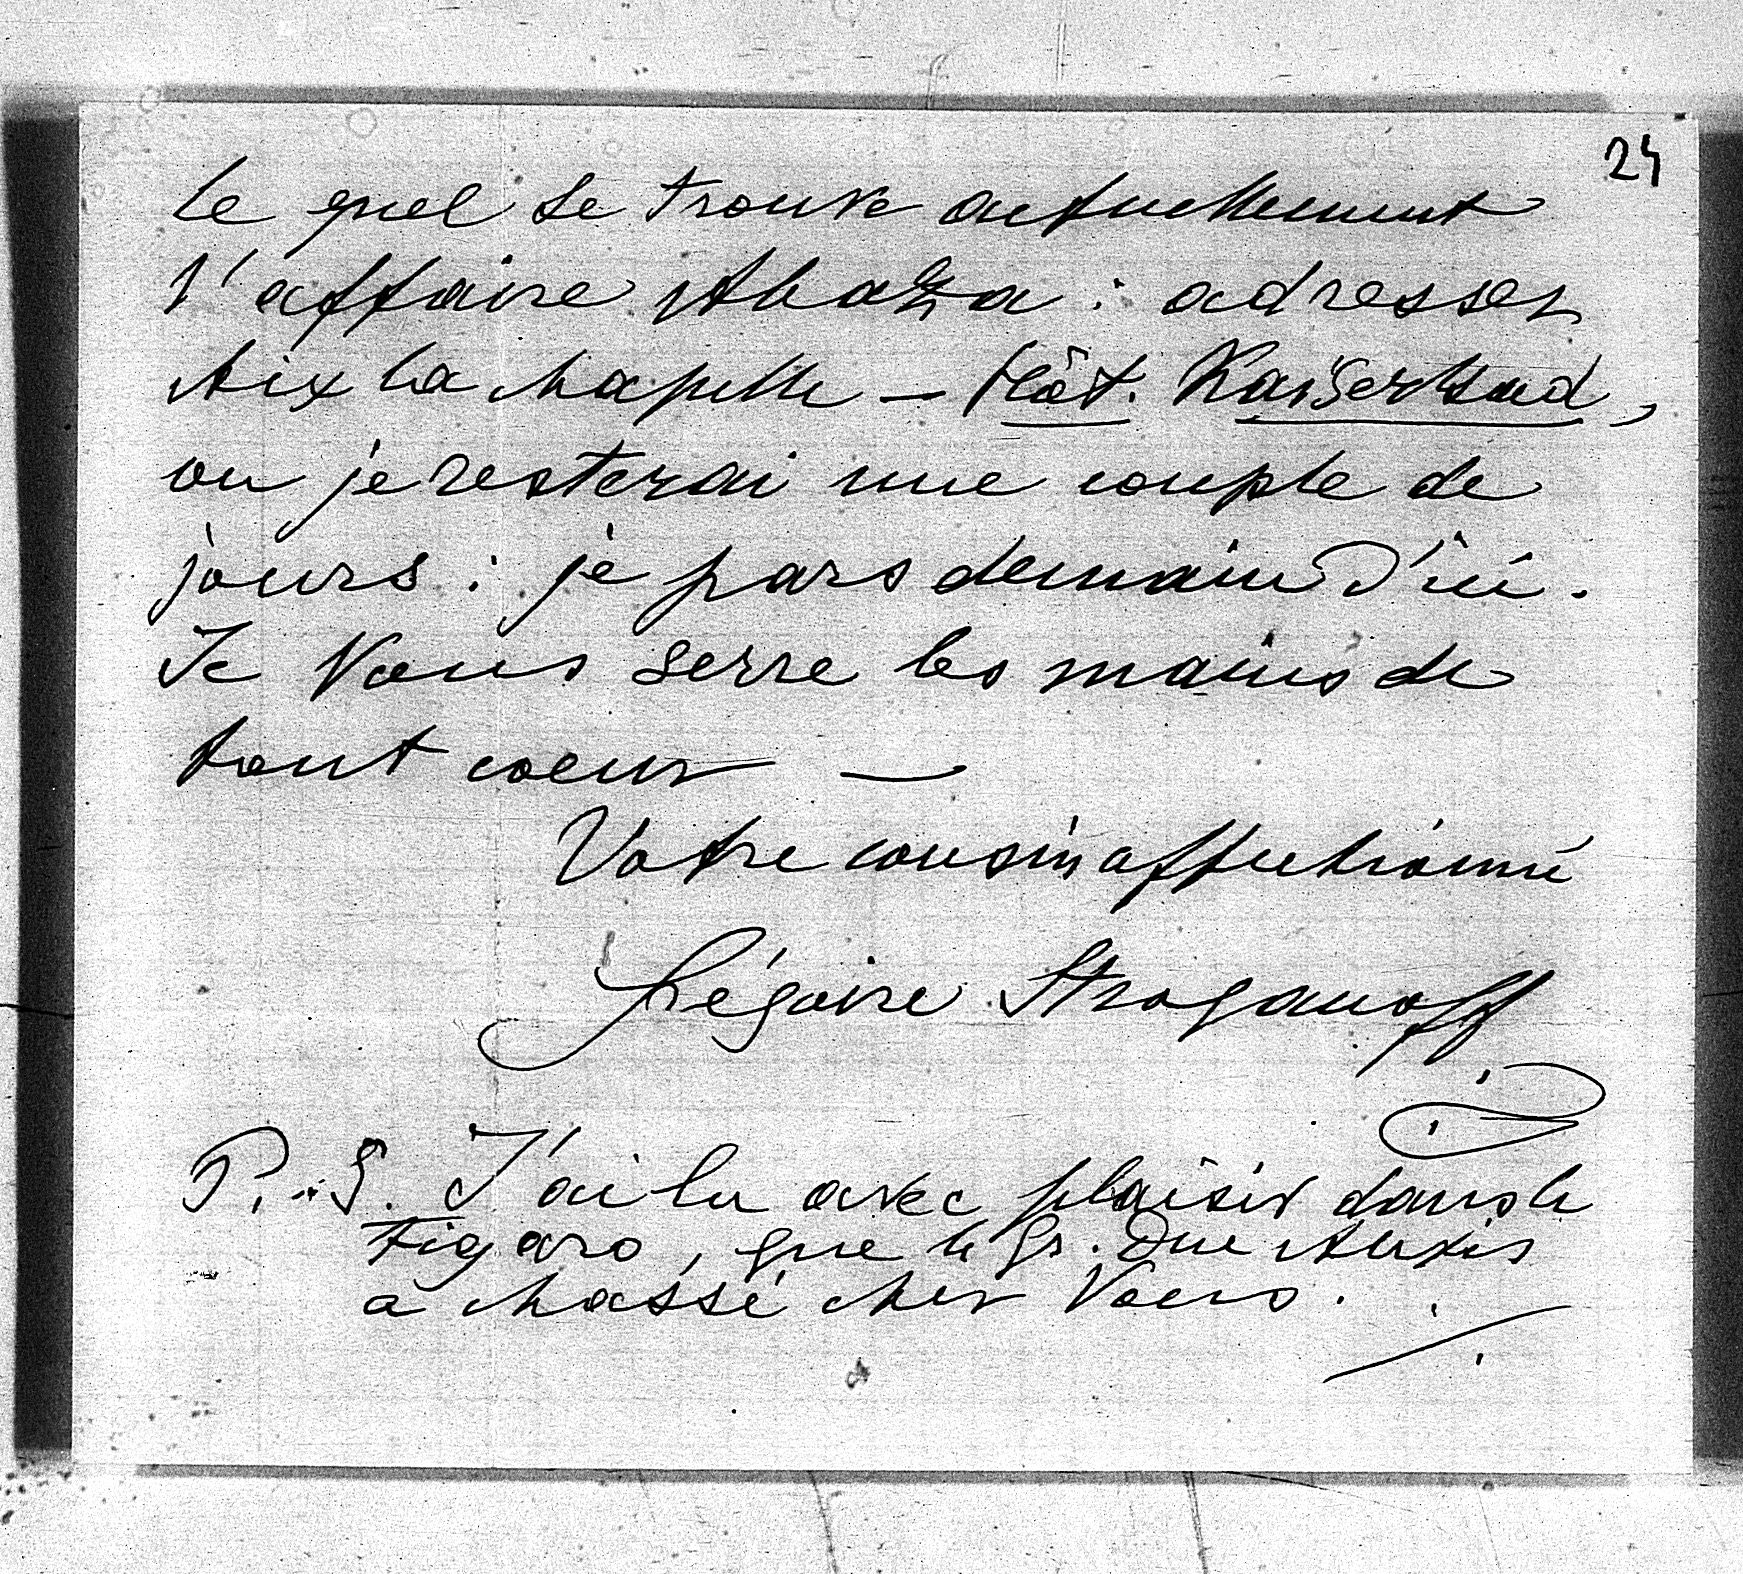 24
le quel se trouve actuellement
l'affaire Abaza : adresser
Aix la Chapelle — Hôt. Kaiserbad,
ou je resterai une couple de
jours : je pars demain d'ici.
Je Vous serre les mains de
tout coeur —
Votre cousin affectionné
Grégoire Stroganoff
P.S. J'ai lu avec plaisir dans le
Figaro, que le Gr. Duc Alexis
a chassé chez Vous.